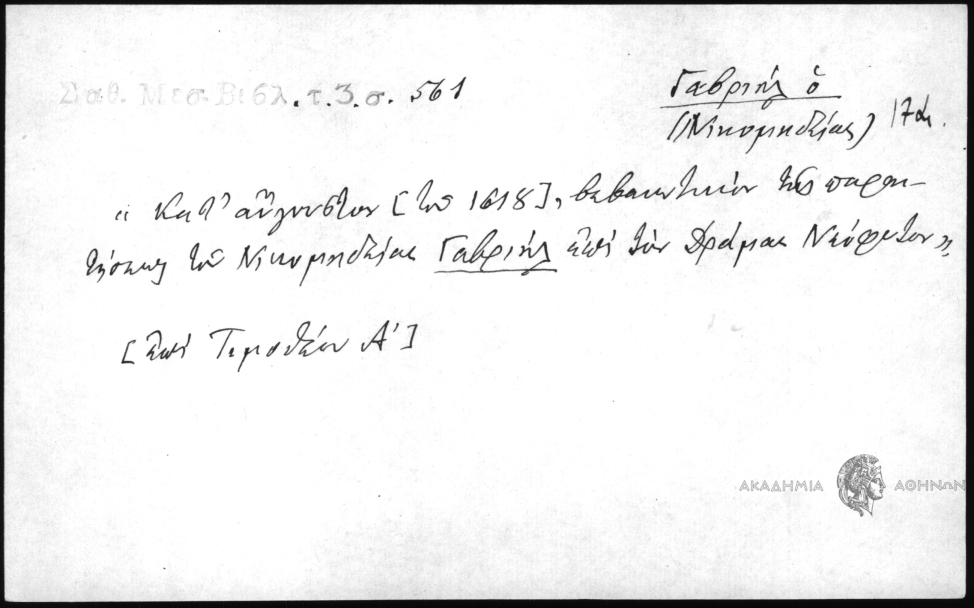 Σαθ. Μεσ. Βιβλ. τ. 3. σ. 561
Γαβριήλ ὁ
(Νικομηδείας) 17 αἰ.
“ Κατ' αὔγουστον [τοῦ 1618], βεβαιωτικὸν τῆς παραι-
τήσεως τοῦ Νικομηδείας Γαβριήλ ἐπὶ τὸν Δράμας Νεόφυτον”
[ἐπὶ Τιμοθέου Α']
ΑΚΑΔΗΜΙΑ ΑΘΗΝΩΝ